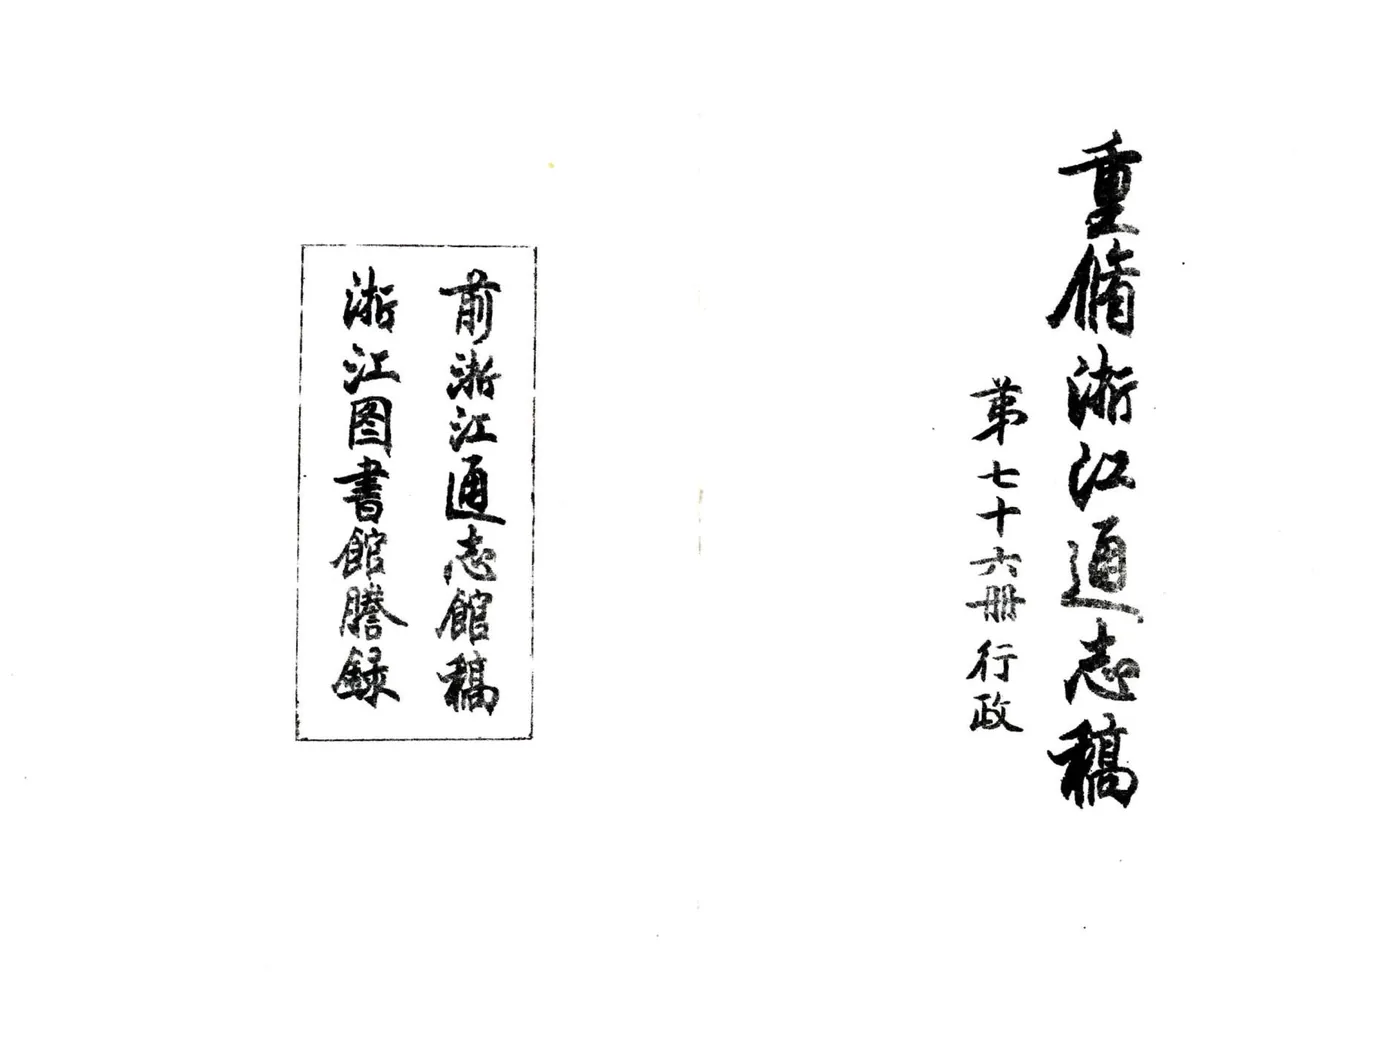 重脩浙江通志稿
第七十六册行政
前浙江通志館稿
浙江图書館謄録